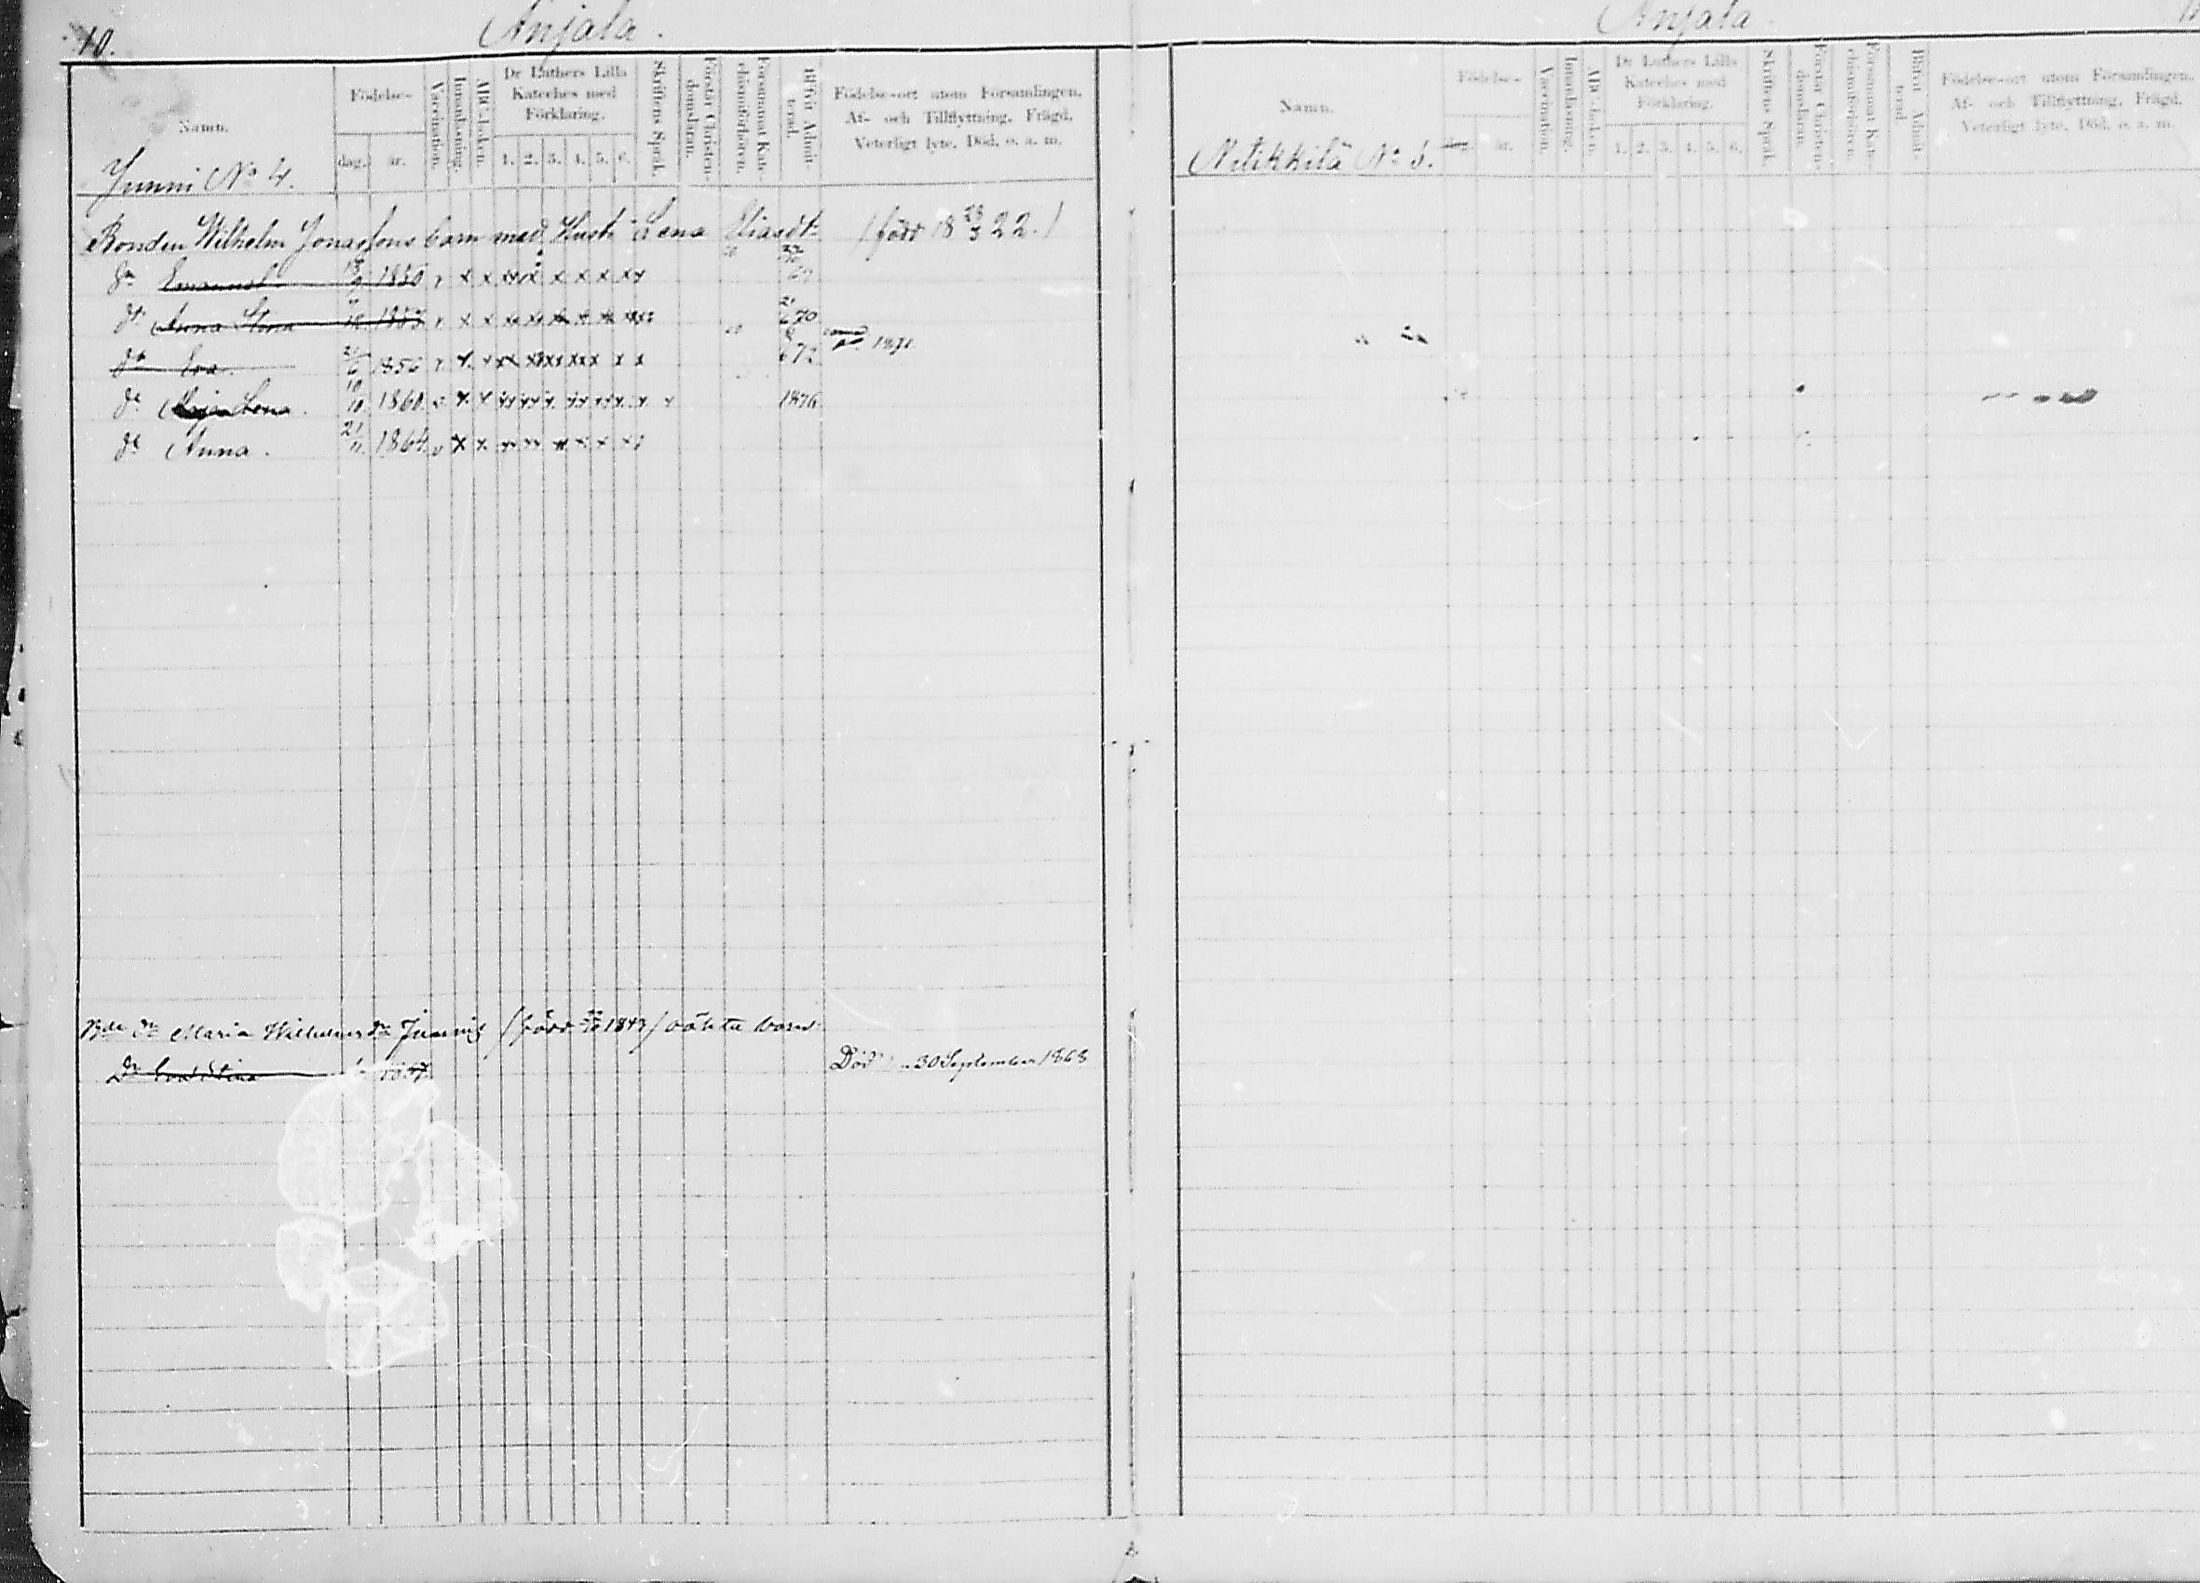 10. Anjala.
Namn.
Födelse-
dag. år.
Vaccination.
Innanläsning.
ABC-boken.
Dr Luthers Lilla
Kateches med
Förklaring.
1. 2. 3. 4. 5. 6.
Skriftens Språk.
Förstår Christen-
domsläran.
Försummat Kate-
chismiförhören.
Blifvit Admit-
terad.
Födelse-ort utom Församlingen.
Af- och Tillflyttning. Frägd.
Veterligt lyte. Död. o. s. m.
Junni No 4.
Bonden Wilhelm Jonassons barn med Hustr Lena Eliasdr (född 18 28/3 22.)
Sn Emanuel 1850 v x x x x x x x x x
dr Anna Stina 1853 v x x x x x x x 21/6 70
dr Eva. 21/6 1856 v x x x x x x x 6 72 1871
dr Maja Lena. 10/10 1860 v x x x x x x x 1876
dr Anna. 21/11 1864 v x x x x x x x
Maria Wilhelmsdr Junni (född 1843) oäkta barn
Dr Eva Stina 1867 Död 30 September 1868
Anjala.
Namn.
Födelse-
år.
Vaccination.
Innanläsning.
ABC-boken.
Dr Luthers Lilla
Kateches med
Förklaring.
1. 2. 3. 4. 5. 6.
Skriftens Språk.
Förstår Christen-
domsläran.
Försummat Kate-
chismiförhören.
Blifvit Admit-
terad.
Födelse-ort utom Församlingen.
Af- och Tillflyttning. Frägd.
Veterligt lyte. Död. o. s. m.
Nitikkilä No 5.